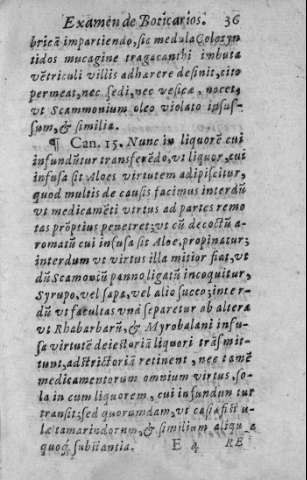 Examen de Boticarios. 36
bricẽ impartiendo, sic medula Colozyn
tidos mucagine tragacanthi imbuta
vẽtriculi villis adhærere desinit, cito
permeat, nec sedi, nec vesicæ, nocet,
vt Scammonium oleo violato insus-
sum, & similia.
¶ Can. 15. Nunc in liquorẽ cui
infundũtur transferẽdo, vt liquor, cui
infusa sit Aloes virtutem adipiscitur,
quod multis de causis facimus interdũ
vt medicamẽti virtus ad partes remo
tas prõptius penetret; vt cũ decoctũ a-
romatũ cui infusa sit Aloe, propinatur;
interdum vt virtus illa mitior fiat, vt
dũ Scamoniũ panno ligatũ incoquitur,
Syrupo, vel sapa, vel alio succo; inter-
dũ vt facultas vna separetur ab altera
vt Rhabarbarũ, & Myrobalani infu-
sa virtutẽ deiectoriã liquori trãsmit-
tunt, adstrictoriã retinent, nec tamẽ
medicamentorum omnium virtus, so-
la in cum liquorem, cui infundun tur
transit; sed quorumdam, vt casia fistu
læ tamarindorum, & similium aliqua
quoq; substantia. E 4 RE